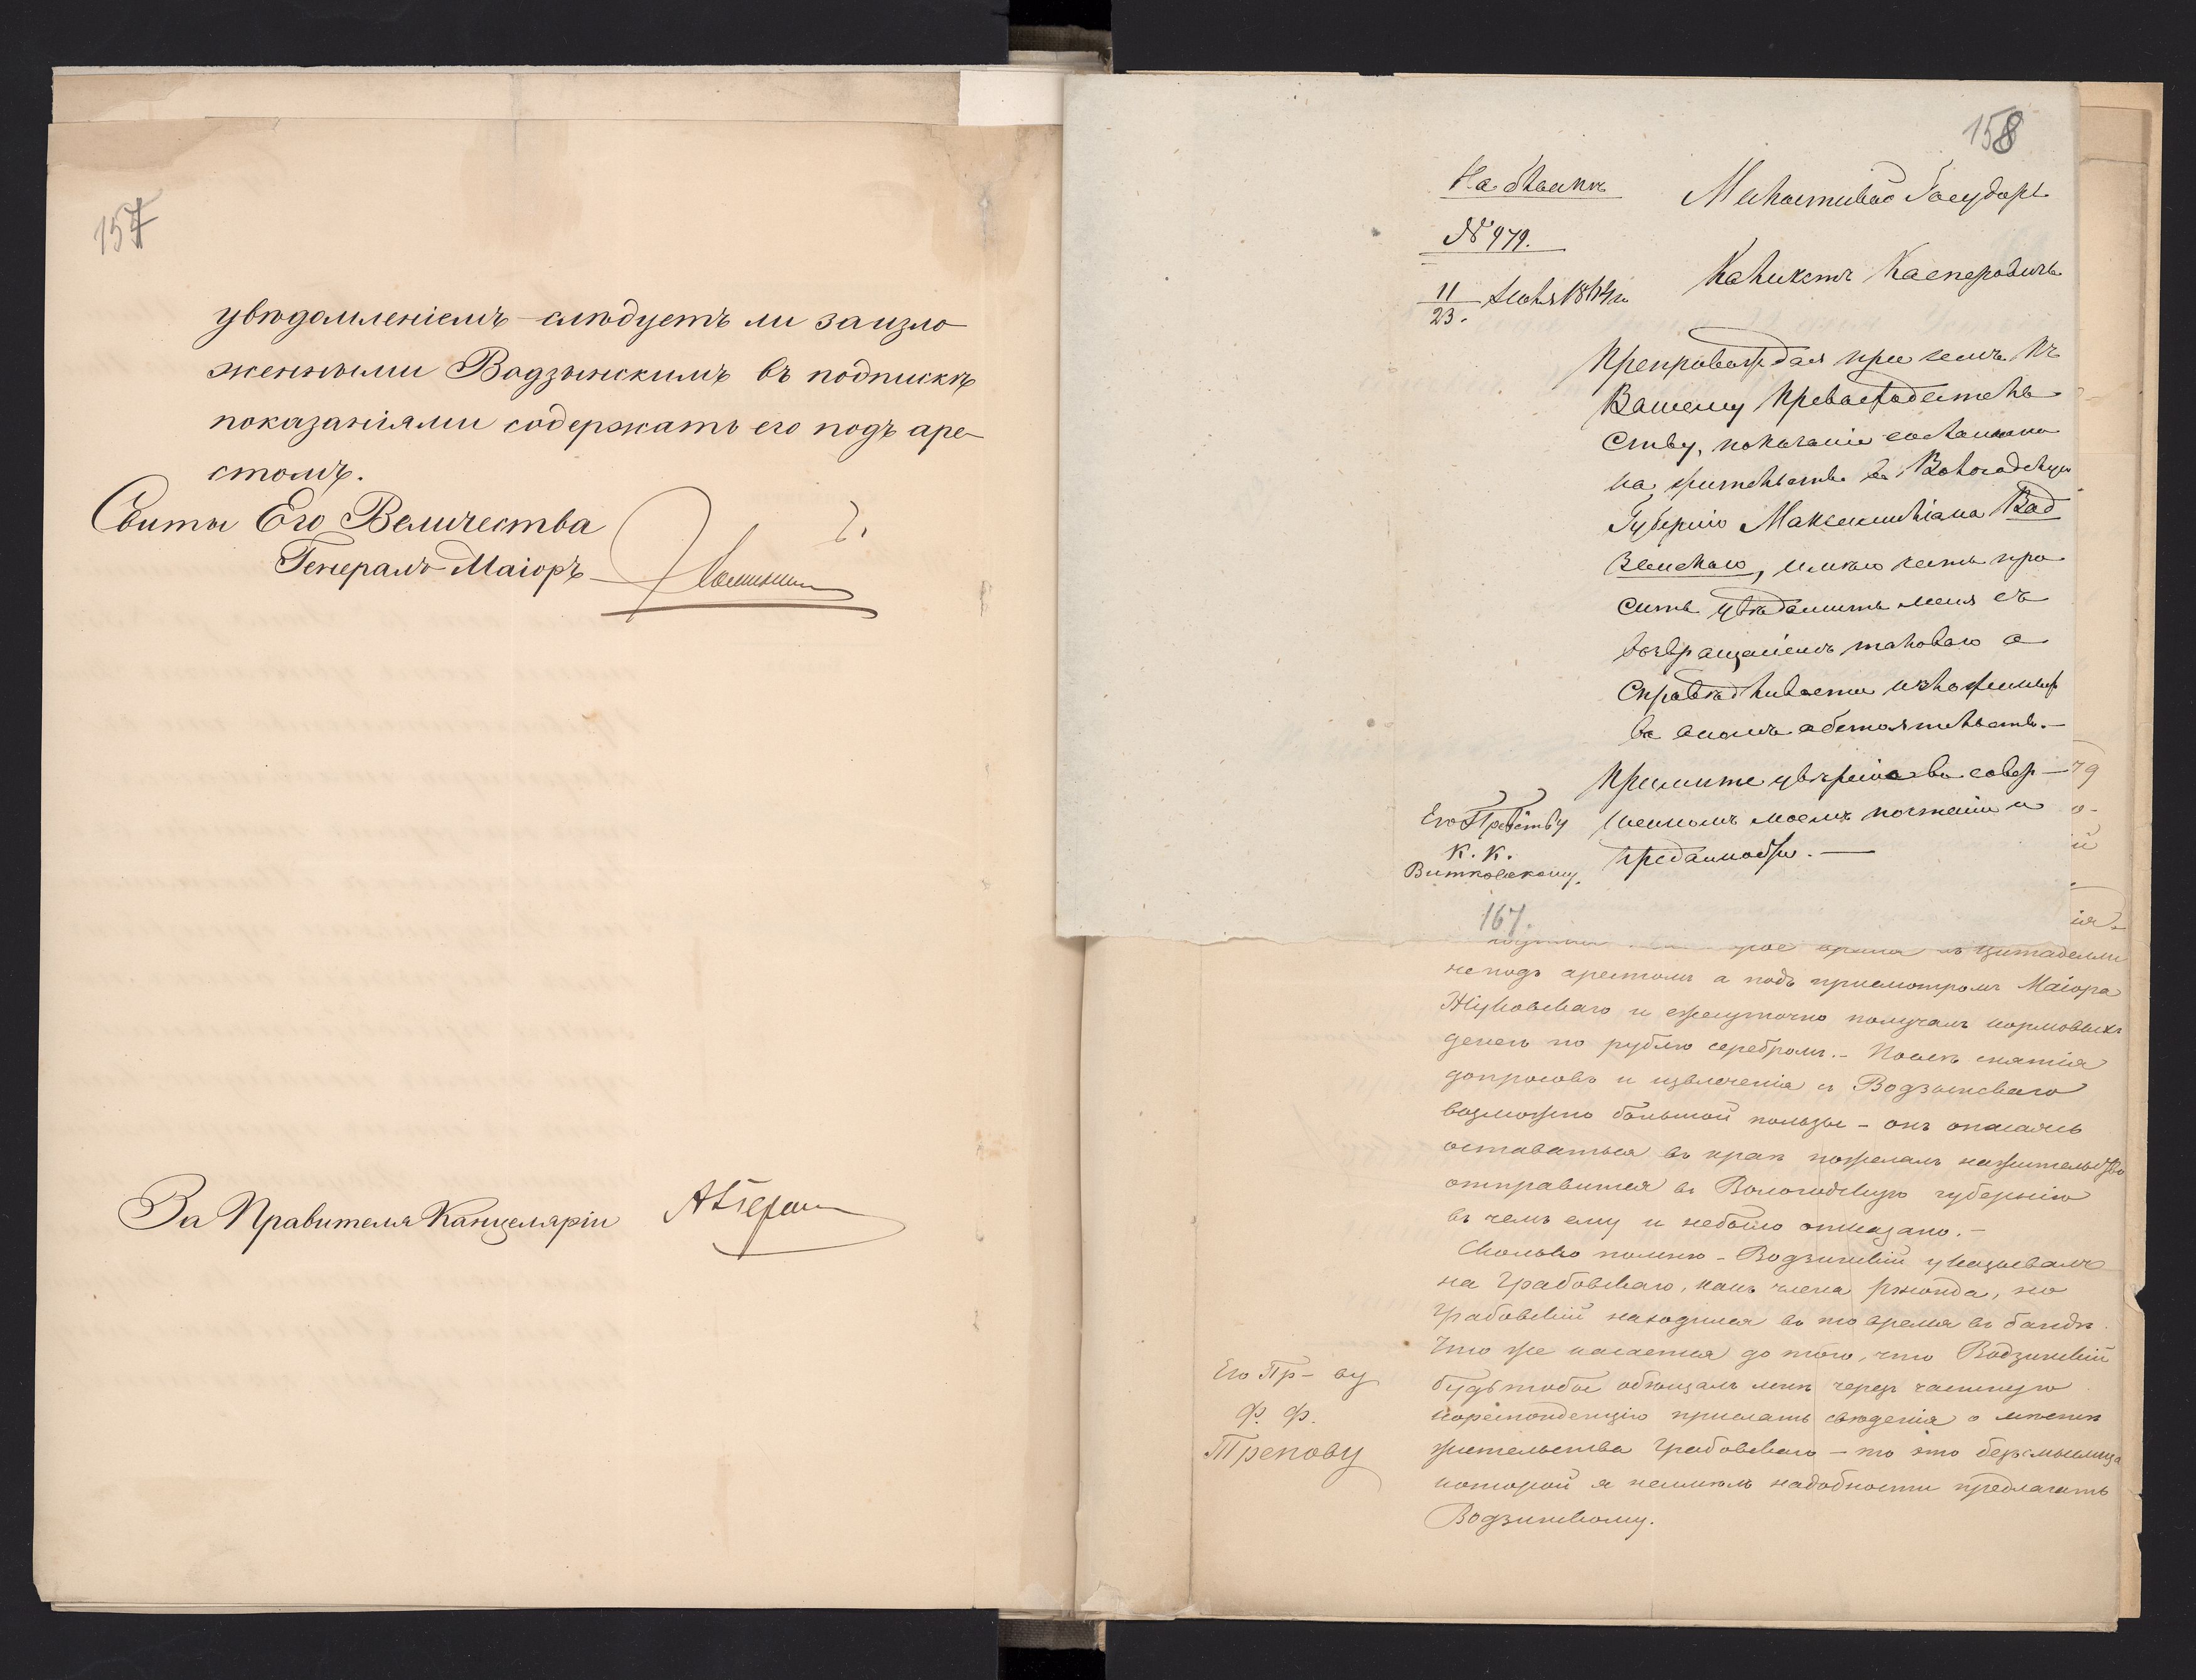 157
увѣдомленіемъ слѣдуетъ ли за изло
женными Водзынскимъ въ подпискѣ
показаніями содержать его подъ аре-
стомъ.
Свиты Его Величества
Генералъ-Маіоръ
За Правителя Канцеляріи
158
На бланкѣ
№ 979.
11/23 Іюля 1864 г.
Милостивый Государь
Каликстъ Касперовичъ
Препровождая при семъ къ
Вашему Превосходитель
ству, показаніе сосланнаго
на жительство въ Вологодскую
Губернію Максимиліана Вод
зынскаго, имѣю честь про
сить увѣдомить меня съ
возвращеніемъ таковаго о
справедливости изложенныхъ
въ ономъ обстоятельствъ.-
Примите увѣреніе въ совер-
шенномъ моемъ почтеніи и
преданности.-
Его Превству
К. К.
Витковскому.
167.
время въ Цитадели
не подъ арестомъ а подъ присмотромъ Маіора
Жуковскаго и ежесуточно получалъ кормовыхъ
денегъ по рублю серебромъ.- Послѣ снятія
допросовъ и извлеченія съ Водзынскаго
возможно большой пользы - онъ опасаясь
оставаться въ краѣ пожелалъ на жительство
отправится въ Вологодскую губернію
въ чемъ ему и небыло отказано.-
Сколько помню - Водзинскій указывалъ
на Грабовскаго, какъ члена ржонда, но
Грабовскій находился въ то время въ бандѣ.
Что же касается до того, что Водзинскій
будьтобы обѣщалъ мнѣ черезъ частную
кореспонденцію прислать свѣденія о мѣстѣ
жительства Грабовскаго - то это безсмыслица
которой я неимѣлъ надобности предлагать
Водзинскому.
Его Пр-ву
Ф. Ф.
Трепову